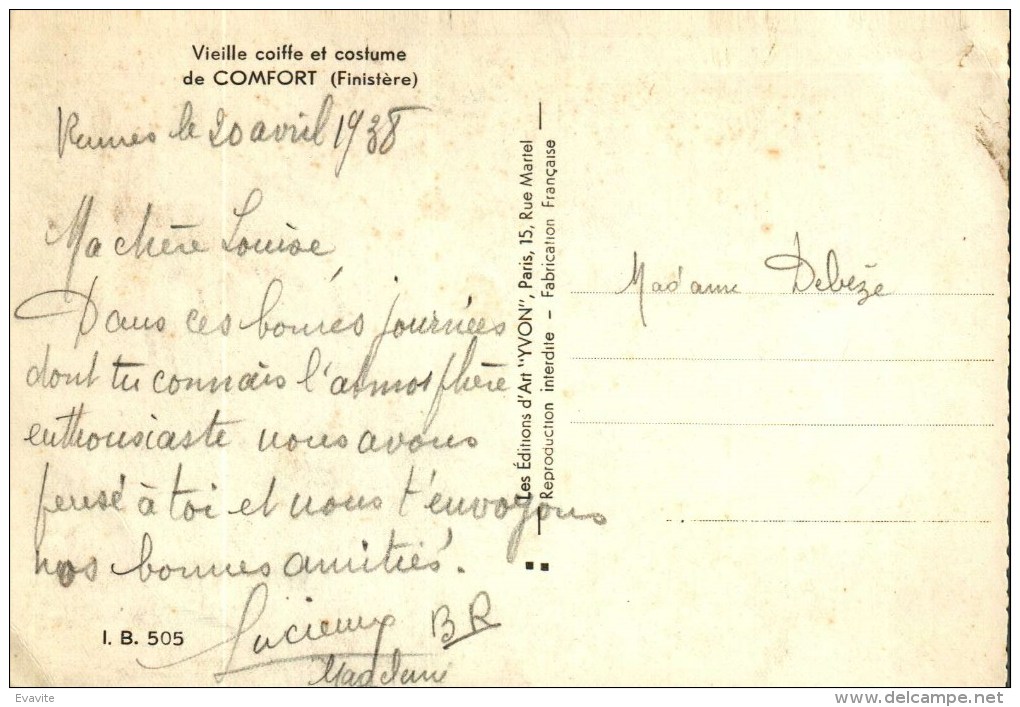 Vieille coiffe et costume
de COMFORT (Finistère)
Rennes le 20 avril 1938
Ma chère Louise
Dans ces bonnes journées
dont tu connais l'atmosphère
enthousiaste nous avons
pensé à toi et nous t'envoyons
nos bonnes amitiés.
I. B. 505
Lucienne BR
Madeleine
Les Éditions d'Art "YVON", Paris, 15, Rue Martel
Reproduction interdite — Fabrication Française
Madame Debèze
Evavite
www.delcampe.net